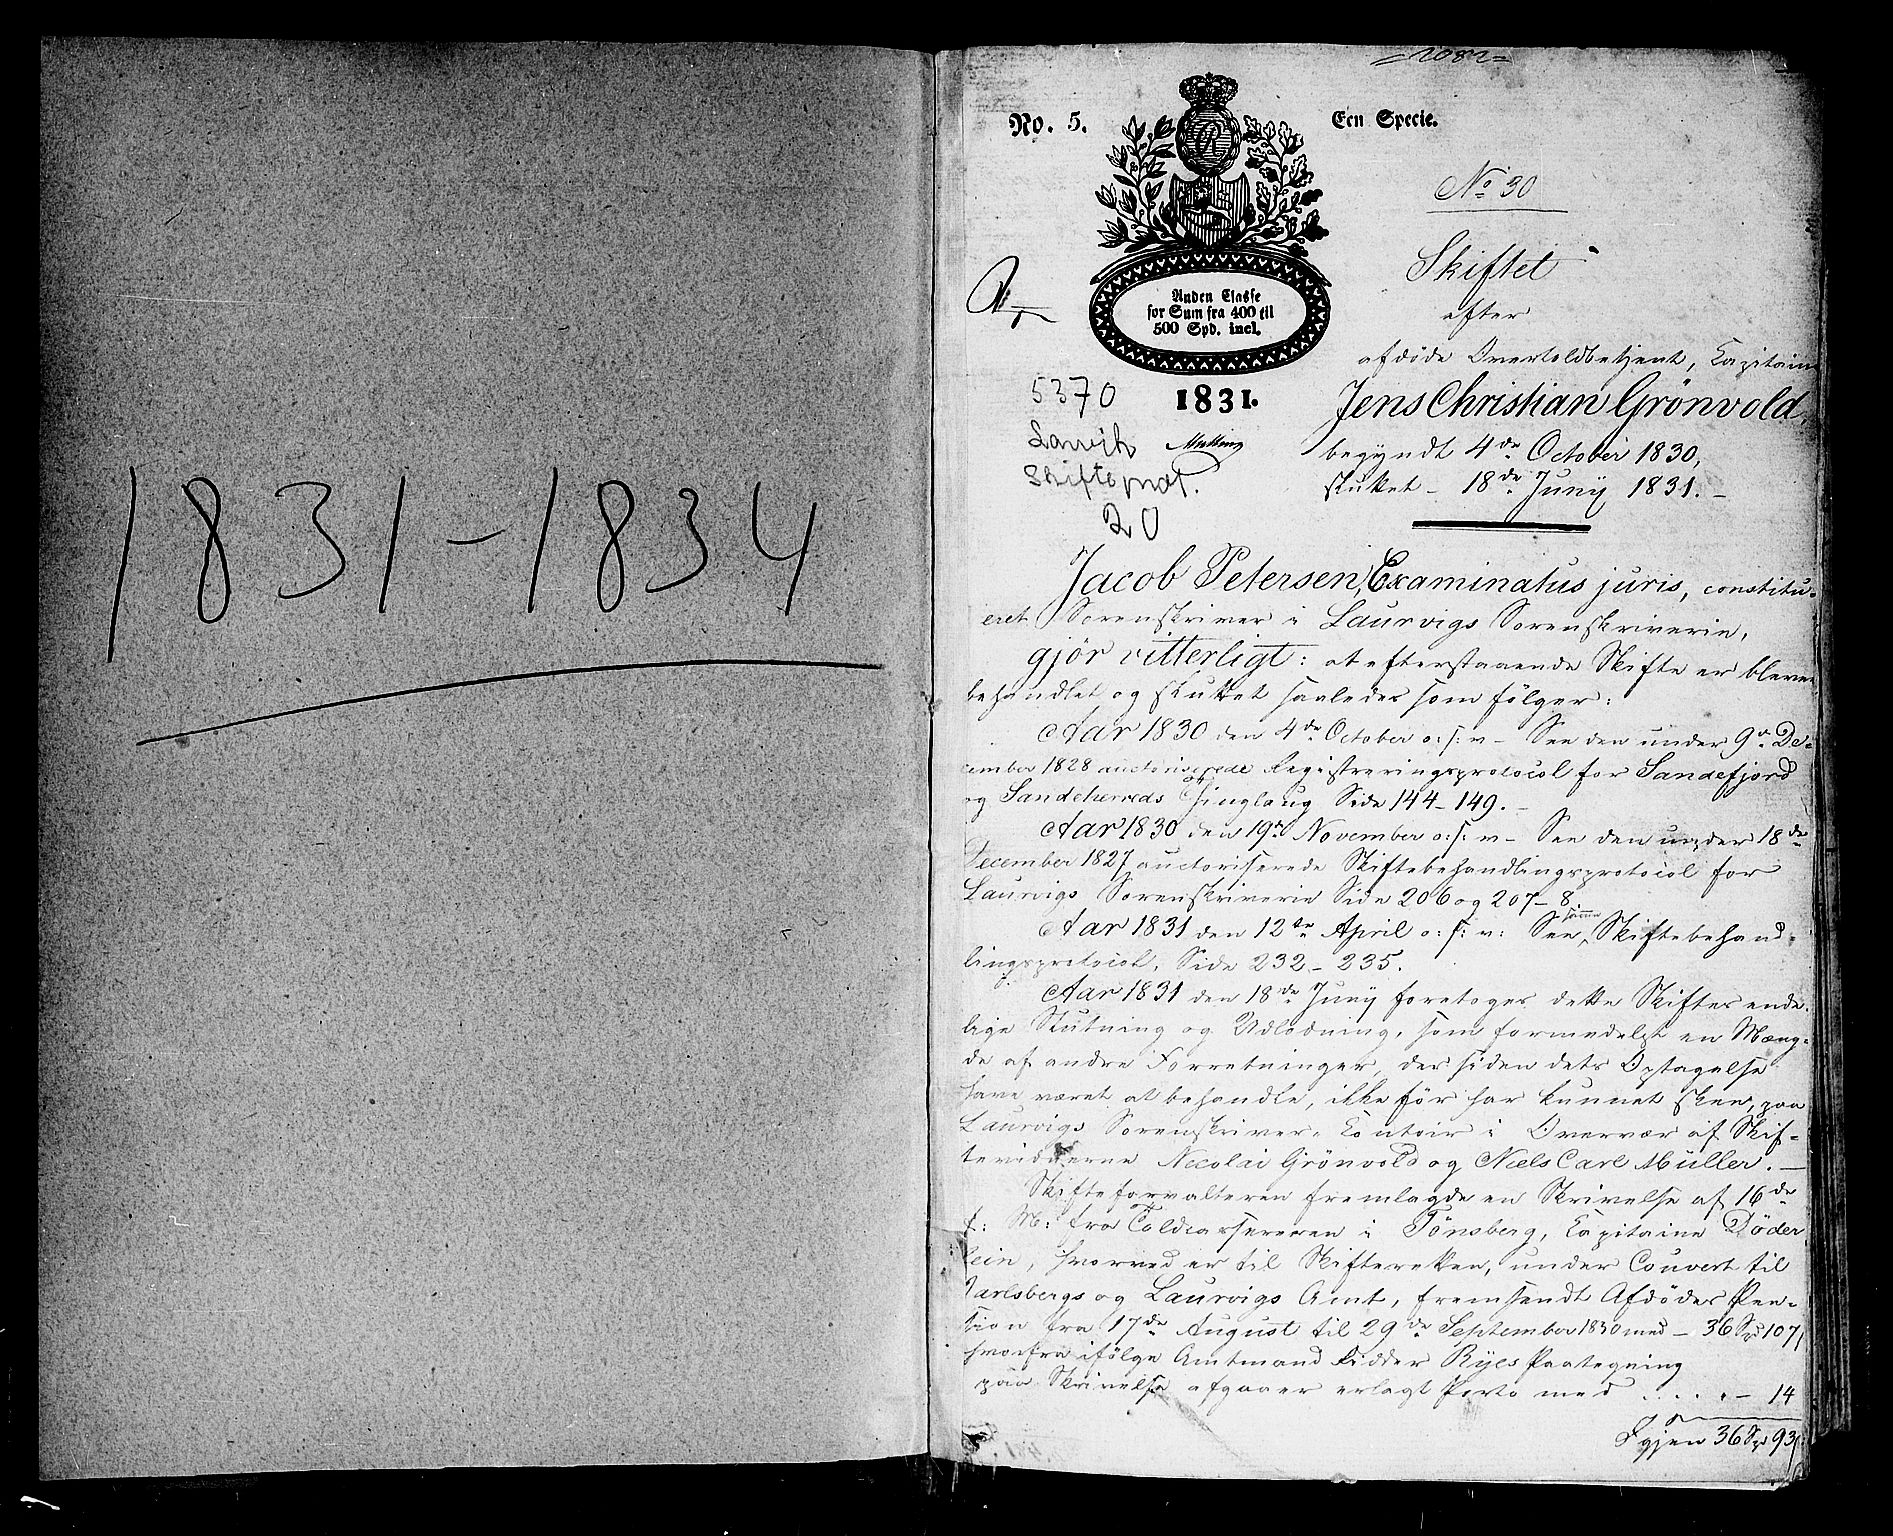 1831-1834
2082
No. 5.
Een Specie.
No 30
Skiftet
efter
Anden Classe
for Sum fra 400 til
500 Spd. incl.
1831.
5370
Larvik
Skifteprot.
20
afdöde Overtoldbetjent, Capitain
Jens Christian Grönvold,
begyndt 4de October 1830,
sluttet - 18de Juny 1831. -
Jacob Petersen, Examinatus juris, constitu-
eret Sorenskriver i Laurvigs Sorenskriverie,
gjör vitterligt: at efterstaaende Skifte er bleven
behandlet og sluttet saaledes som fölger:
Aar 1830 den 4de October o: s: v - See den under 9de De-
cember 1828 auctoriserede Registreringsprotocol for Sandefjord
og Sandeherreds Thinglaug Side 144-149. -
Aar 1830 den 19de November o: s: v - See den under 18de
December 1827 auctoriserede Skiftebehandlingsprotocol for
Laurvigs Sorenskriverie Side 206 og 207-8.
Aar 1831 den 12te April o: s: v: See samme Skiftebehand-
lingsprotocol, Side 232-235.
Aar 1831 den 18de Juny foretoges dette Skiftes ende-
lige Slutning og Udlodning, som formedelst en Mæng-
de af andre Forretninger, der siden dets Optagelse
have været at behandle, ikke för har kunnet skee, paa
Laurvigs Sorenskriver-Contoir i Overvær af Skif-
tevidnerne Necolai Grönvold og Niels Carl Müller. -
Skifteforvalteren fremlagde en Skrivelse af 16de
f: M: fra Toldcassereren i Tönsberg, Capitaine Döder
lein, hvorved er til Skifteretten, under Couvert til
Jarlsbergs og Laurvigs Amt, fremsendt Afdödes Pen-
sion fra 17de August til 29de September 1830 med - 36 Spd 107
hvorfra ifölge Amtmand Ridder Ryes Paategning
paa Skrivelse afgaaer erlagt Porto med . . . . - 14
Igjen 36 Spd 93